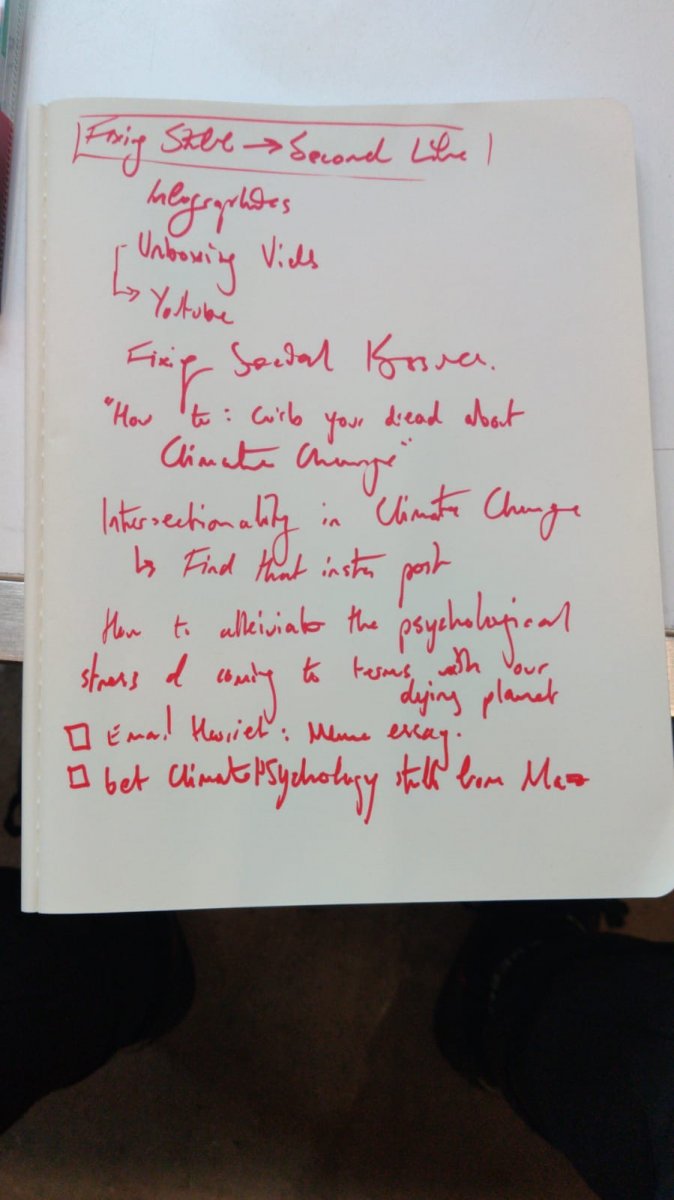 Fixing → Second Life
Infographics
Unboxing Vids
↳ Yotube
Fixing Social
"How to: Curb your dread about
Climate Change"
Intersectionality in Climate Change
↳ Find that insta post
How to alleiviate the psychological
stress of coming to terms with our
dying planet
☐ Email Harriet: Meme essay.
☐ Get Climate Psychology stuff from Maz